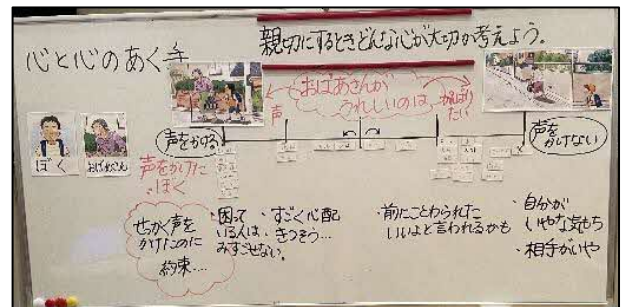 心と心のあく手
親切にするときどんな心が大切か考えよう。
おばあさんが
うれしいのは
声
がんばり
たい
声をかける
声を
かけない
ぼく
おばあさん
声をかけた
ぼく
せっかく声を
かけたのに
約束…
・困って
いる人は
みすごせない。
・すごく心配
きつそう…
・前にことわられた
いいよと言われるかも
・自分が
いやな気もち
・相手がいや